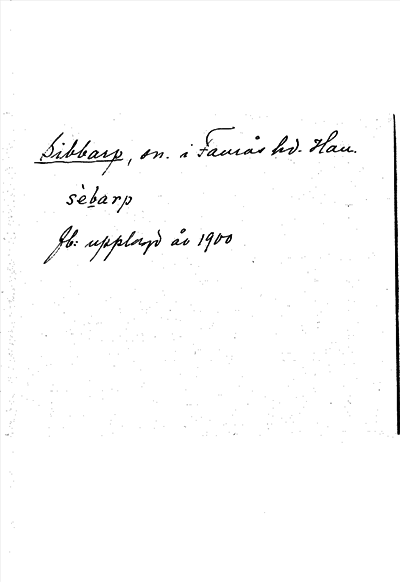 Sibbarp, sn. i Faurås hd. Hall.
sèbarp
Jb: upplagd år 1900